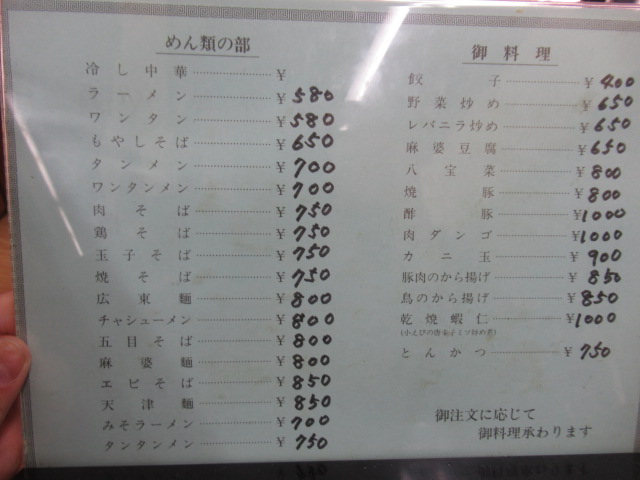 めん類の部
冷し中華 ¥
ラーメン ¥580
ワンタン ¥580
もやしそば ¥650
タンメン ¥700
ワンタンメン ¥700
肉そば ¥750
鶏そば ¥750
玉子そば ¥750
焼そば ¥750
広東麺 ¥800
チャシューメン ¥800
五目そば ¥800
麻婆麺 ¥800
エビそば ¥850
天津麺 ¥850
みそラーメン ¥700
タンタンメン ¥750
御料理
餃子 ¥400
野菜炒め ¥650
レバニラ炒め ¥650
麻婆豆腐 ¥650
八宝菜 ¥800
焼豚 ¥800
酢豚 ¥1000
肉ダンゴ ¥1000
カニ玉 ¥900
豚肉のから揚げ ¥850
鳥のから揚げ ¥850
乾焼蝦仁 ¥1000
(小えびの唐辛子ミソ炒め煮)
とんかつ ¥750
御注文に応じて
御料理承わります